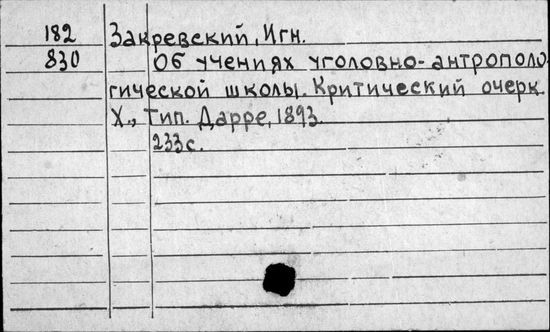 182 Закревский, Игн.
830 Об учениях уголовно-антрополо
гической школы. Критический очерк.
Х., Тип. Дарре, 1893.
233с.